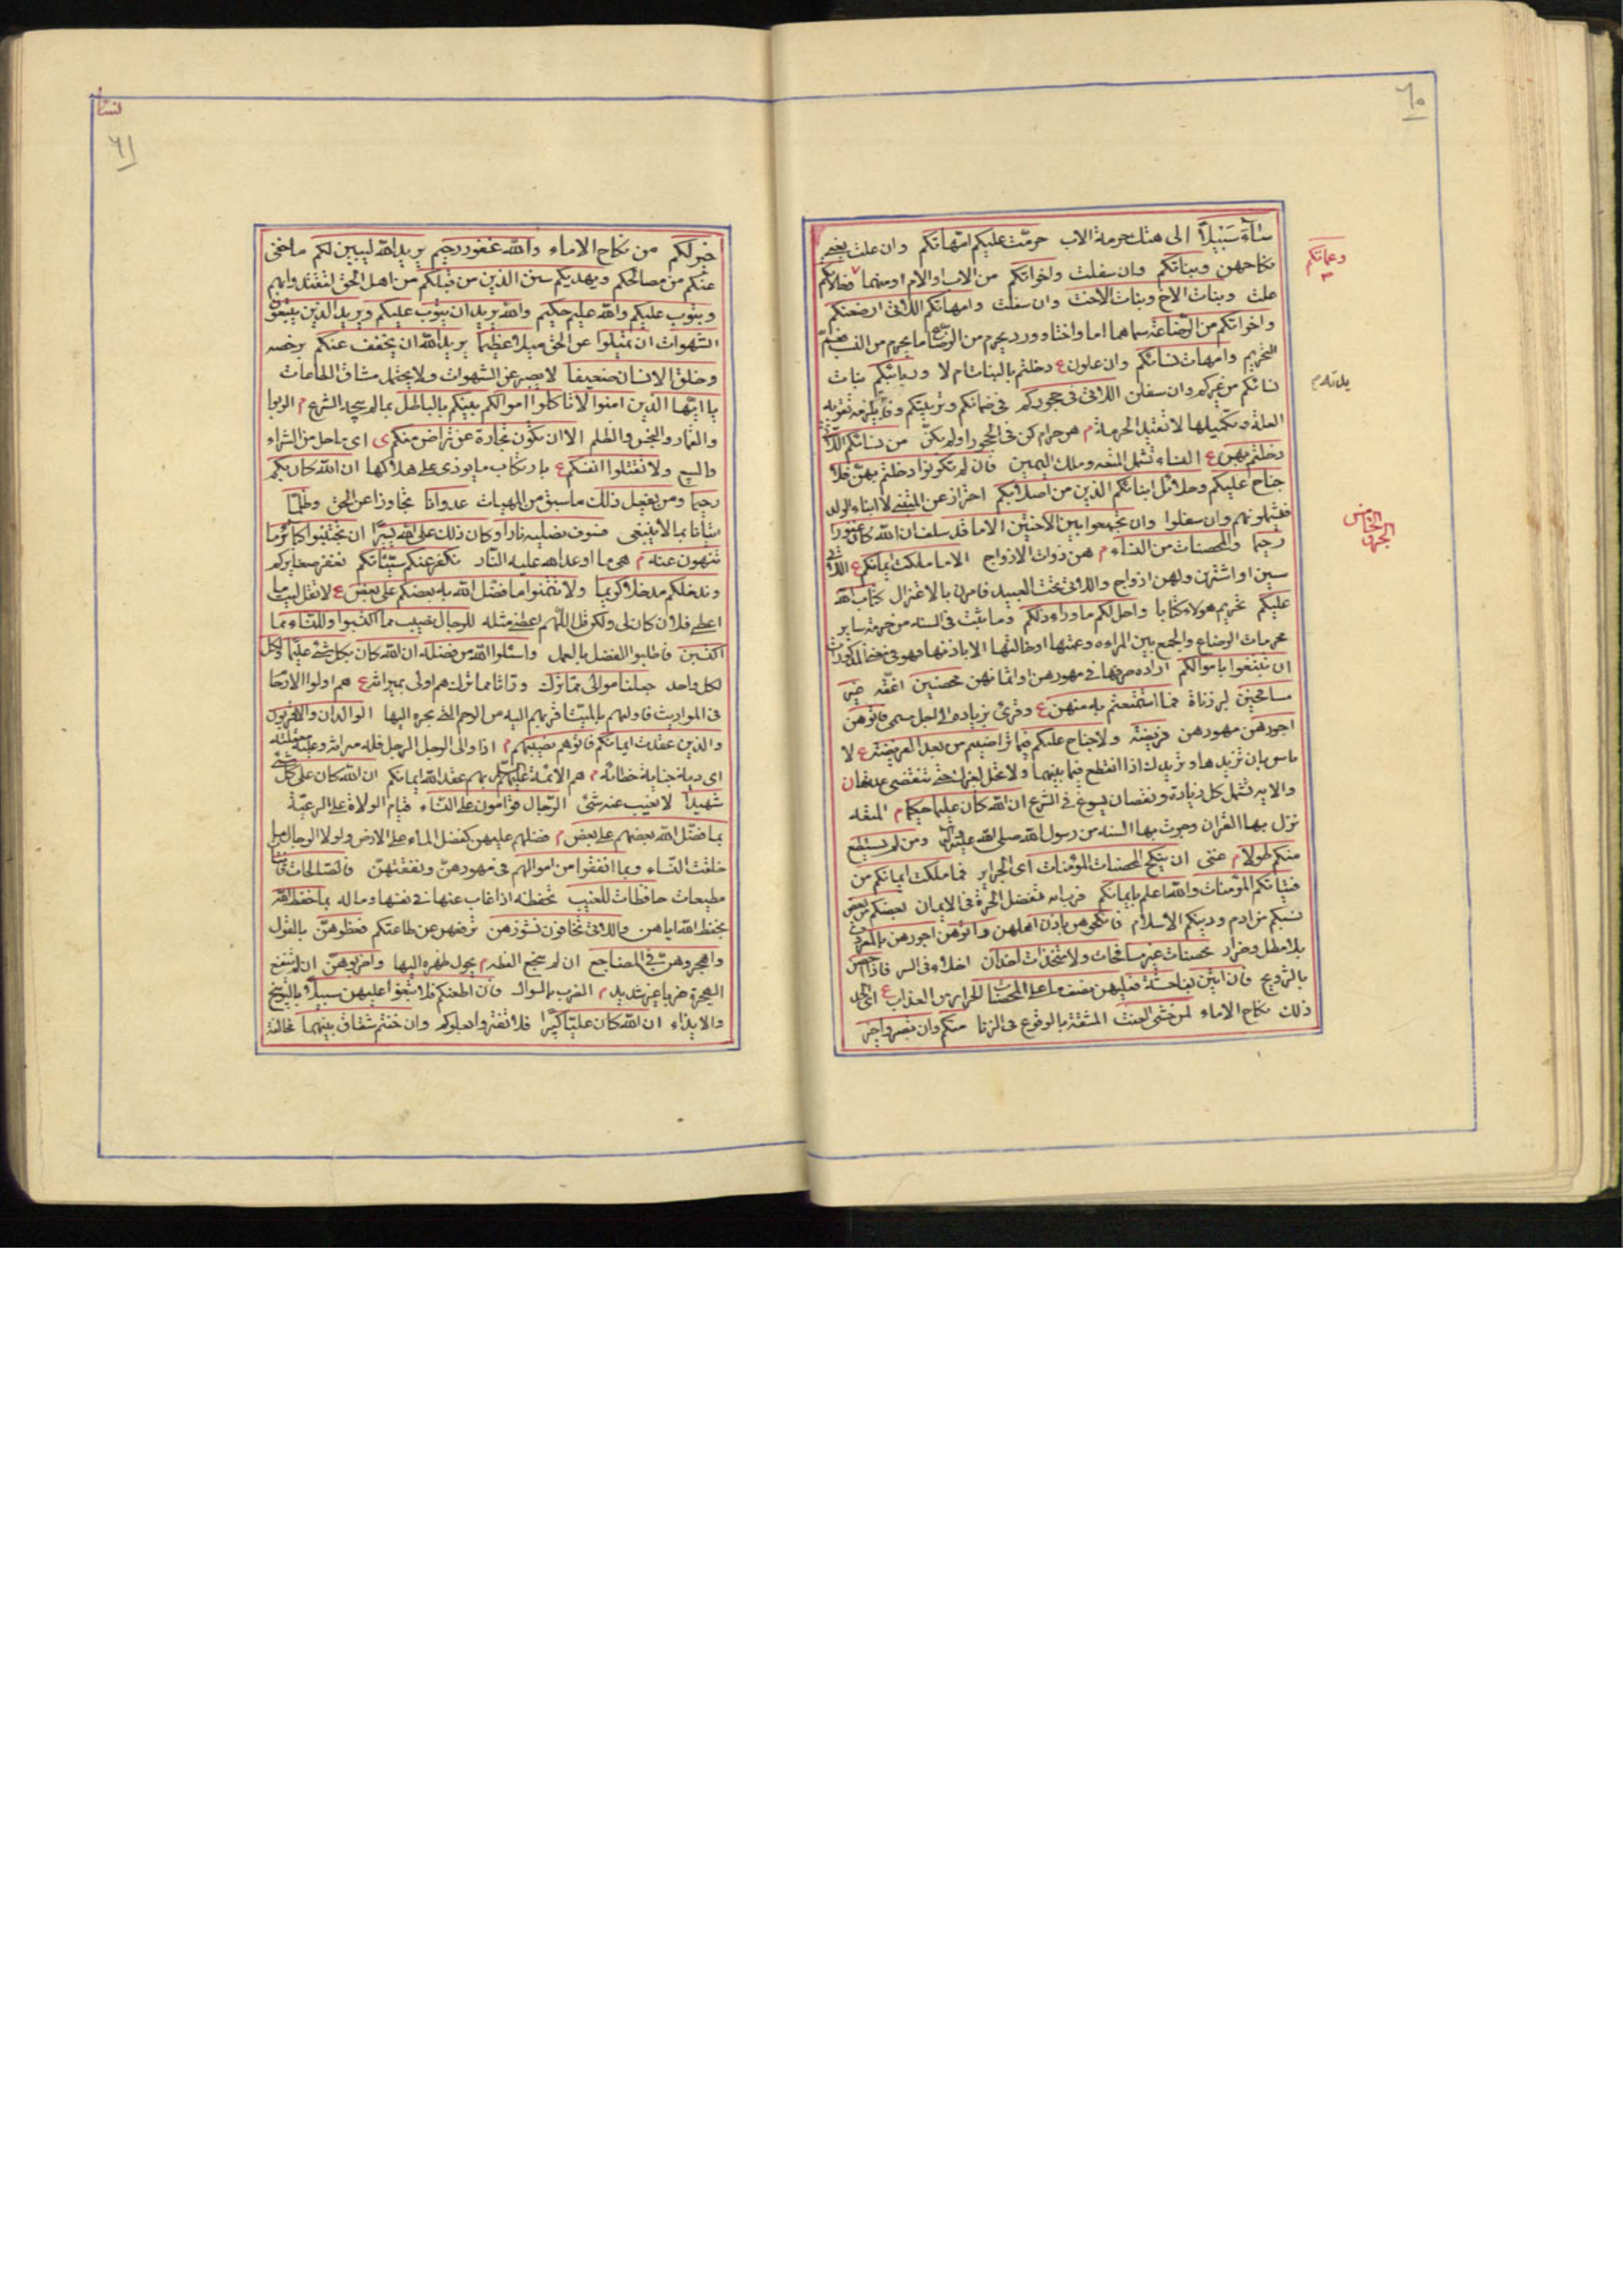 ٦٠
وساء سبيلا الى هتك حرمة الاب حرمت عليكم امهاتكم وان علت يعنى
نكاحهن وبناتكم وان سفلت واخواتكم من الاب او الام او منهما وخالاتكم
وعماتكم
علت وبنات الاخ وبنات الاخت وان سفلت وامهاتكم اللاتى ارضعنكم
واخواتكم من الرضاعة سماهما اما واختا وورد يحرم من الرضاع ما يحرم من النسب
التحريم وامهات نسائكم وان علون ع دخلتم بالبنات ام لا وربائبكم بنات
نسائكم من غيركم وان سفلن اللاتى فى حجوركم فى ضمانكم وتربيتكم
العلة وتكميلها لا تقييد الحرمة م هن حرام كن فى الحجور او لم يكن من نسائكم اللاتى
دخلتم بهن ع النساء تشمل المتعه وملك اليمين فان لم تكونوا دخلتم بهن فلا
جناح عليكم وحلائل ابنائكم الذين من اصلابكم احتراز عن المتبنى لا ابناء الولد
فيشملونهم وان سفلوا وان تجمعوا بين الاختين الا ما قد سلف ان الله كان غفورا
الجزء الخامس
رحيما والمحصنات من النساء م هن ذوات الازواج الا ما ملكت ايمانكم ع اللاتى
سبين او اشترين ولهن ازواج واللاتى تحت العبيد فامرن بالاعتزال كتاب الله
عليكم تحريم هولاء كتابا واحل لكم ما وراء ذلكم وما يثبت فى السنه من حرمة ساير
محرمات الرضاع والجمع بين المراه وعمتها او خالتها الا باذنها فهو فى معنى المذكورات
ان تبتغوا باموالكم اراده صرفها فى مهورهن او اثمانهن محصنين اعفه غير
مسافحين غير زناة فما استمتعتم به منهن ع وقرئ بزياده الى اجل مسمى فاتوهن
اجورهن مهورهن فريضة ولا جناح عليكم فيما تراضيتم من بعد الفريضة ع لا
باس بان تزيدها وتزيدك اذا انقطع فيما بينهما ولا تحل لغيرك حتى تنقضى عدتها ن
والايه تشمل كل زيادة ونقصان يسوغ فى الشرع ان الله كان عليما حكيما م المتعه
نزل بها القران وجرت بها السنه من رسول الله صلى الله عليه واله ومن لم يستطع
منكم طولا م غنى ان ينكح المحصنات المؤمنات اى الحراير فمما ملكت ايمانكم من
فتياتكم المؤمنات والله اعلم بايمانكم فرب امه تفضل الحرة فى الايمان بعضكم من بعض
نسبكم من ادم ودينكم الاسلام فانكحوهن باذن اهلهن واتوهن اجورهن بالمعروف
بلا مطل وضرار محصنات غير مسافحات ولا متخذات اخدان اخلاء فى السر فاذا احصن
بالتزويج فان اتين بفاحشة فعليهن نصف ما على المحصنات الحراير من العذاب ع اى الحد
ذلك نكاح الاماء لمن خشى العنت المشقة بالوقوع فى الزنا منكم وان تصبروا خير
نساء
٦١
خير لكم من نكاح الاماء والله غفور رحيم يريد الله ليبين لكم ما خفى
عنكم من مصالحكم ويهديكم سنن الذين من قبلكم من اهل الحق لتقتدوا بهم
ويتوب عليكم والله عليم حكيم والله يريد ان يتوب عليكم ويريد الذين يتبعون
الشهوات ان تميلوا عن الحق ميلا عظيما يريد الله ان يخفف عنكم برخصه
وخلق الانسان ضعيفا لا يصبر عن الشهوات ولا يحتمل مشاق الطاعات
يا ايها الذين امنوا لا تاكلوا اموالكم بينكم بالباطل بما لم يبحه الشرع م الربوا
والقمار والبخس والظلم الا ان تكون تجارة عن تراض منكم ى اى ما حل من الشراء
والبيع ولا تقتلوا انفسكم ع بارتكاب ما يؤدى على هلاكها ان الله كان بكم
رحيما ومن يفعل ذلك ما سبق من المنهيات عدوانا تجاوزا عن الحق وظلما
اتيانا بما لا ينبغى فسوف نصليه نارا وكان ذلك على الله يسيرا ان تجتنبوا كبائر ما
تنهون عنه م هى ما اوعد الله عليه النار نكفر عنكم سيئاتكم نغفر صغايركم
وندخلكم مدخلا كريما ولا تتمنوا ما فضل الله به بعضكم على بعض ع لا تقل ليت ما
اعطى فلان كان لى ولكن قل اللهم اعطنى مثله للرجال نصيب مما اكتسبوا وللنساء مما
اكتسبن فاطلبوا الفضل بالعمل واسئلوا الله من فضله ان الله كان بكل شئ عليما ولكل
لكل واحد جعلنا موالى مما ترك وراثا مما ترك هم اولى بميراثه ع هم اولوا الارحام
فى المواريث فاوليهم بالميت اقربهم اليه من الرحم التى تجره اليها الوالدان والاقربون
والذين عقدت ايمانكم فاتوهم نصيبهم م اذا والى الرجل الرجل فله ميراثه وعليه معقلته
اى دية جناية خطائه م هم الائمة عليهم السلام بهم عقد الله ايمانكم ان الله كان على كل شئ
شهيدا لا يغيب عنه شئ الرجال قوامون على النساء قيام الولاة على الرعية
بما فضل الله بعضهم على بعض م فضلهم عليهن كفضل الماء على الارض ولولا الرجال ما
خلقت النساء وبما انفقوا من اموالهم فى مهورهن ونفقتهن فالصالحات قانتات
مطيعات حافظات للغيب تحفظه اذا غاب عنها فى نفسها وماله بما حفظ الله
بحفظ الله اياهن واللاتى تخافون نشوزهن ترفعهن عن طاعتكم فعظوهن بالقول
واهجروهن فى المضاجع ان لم ينجع العظه م يحول ظهره اليها واضربوهن ان لم تنفع
الهجرة ضربا غير شديد م الضرب بالسواك فان اطعنكم فلا تبغوا عليهن سبيلا بالتوبيخ
والايذاء ان الله كان عليا كبيرا فلا تغتروا بعلوكم وان خفتم شقاق بينهما مخالفة